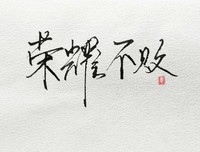 荣耀不败